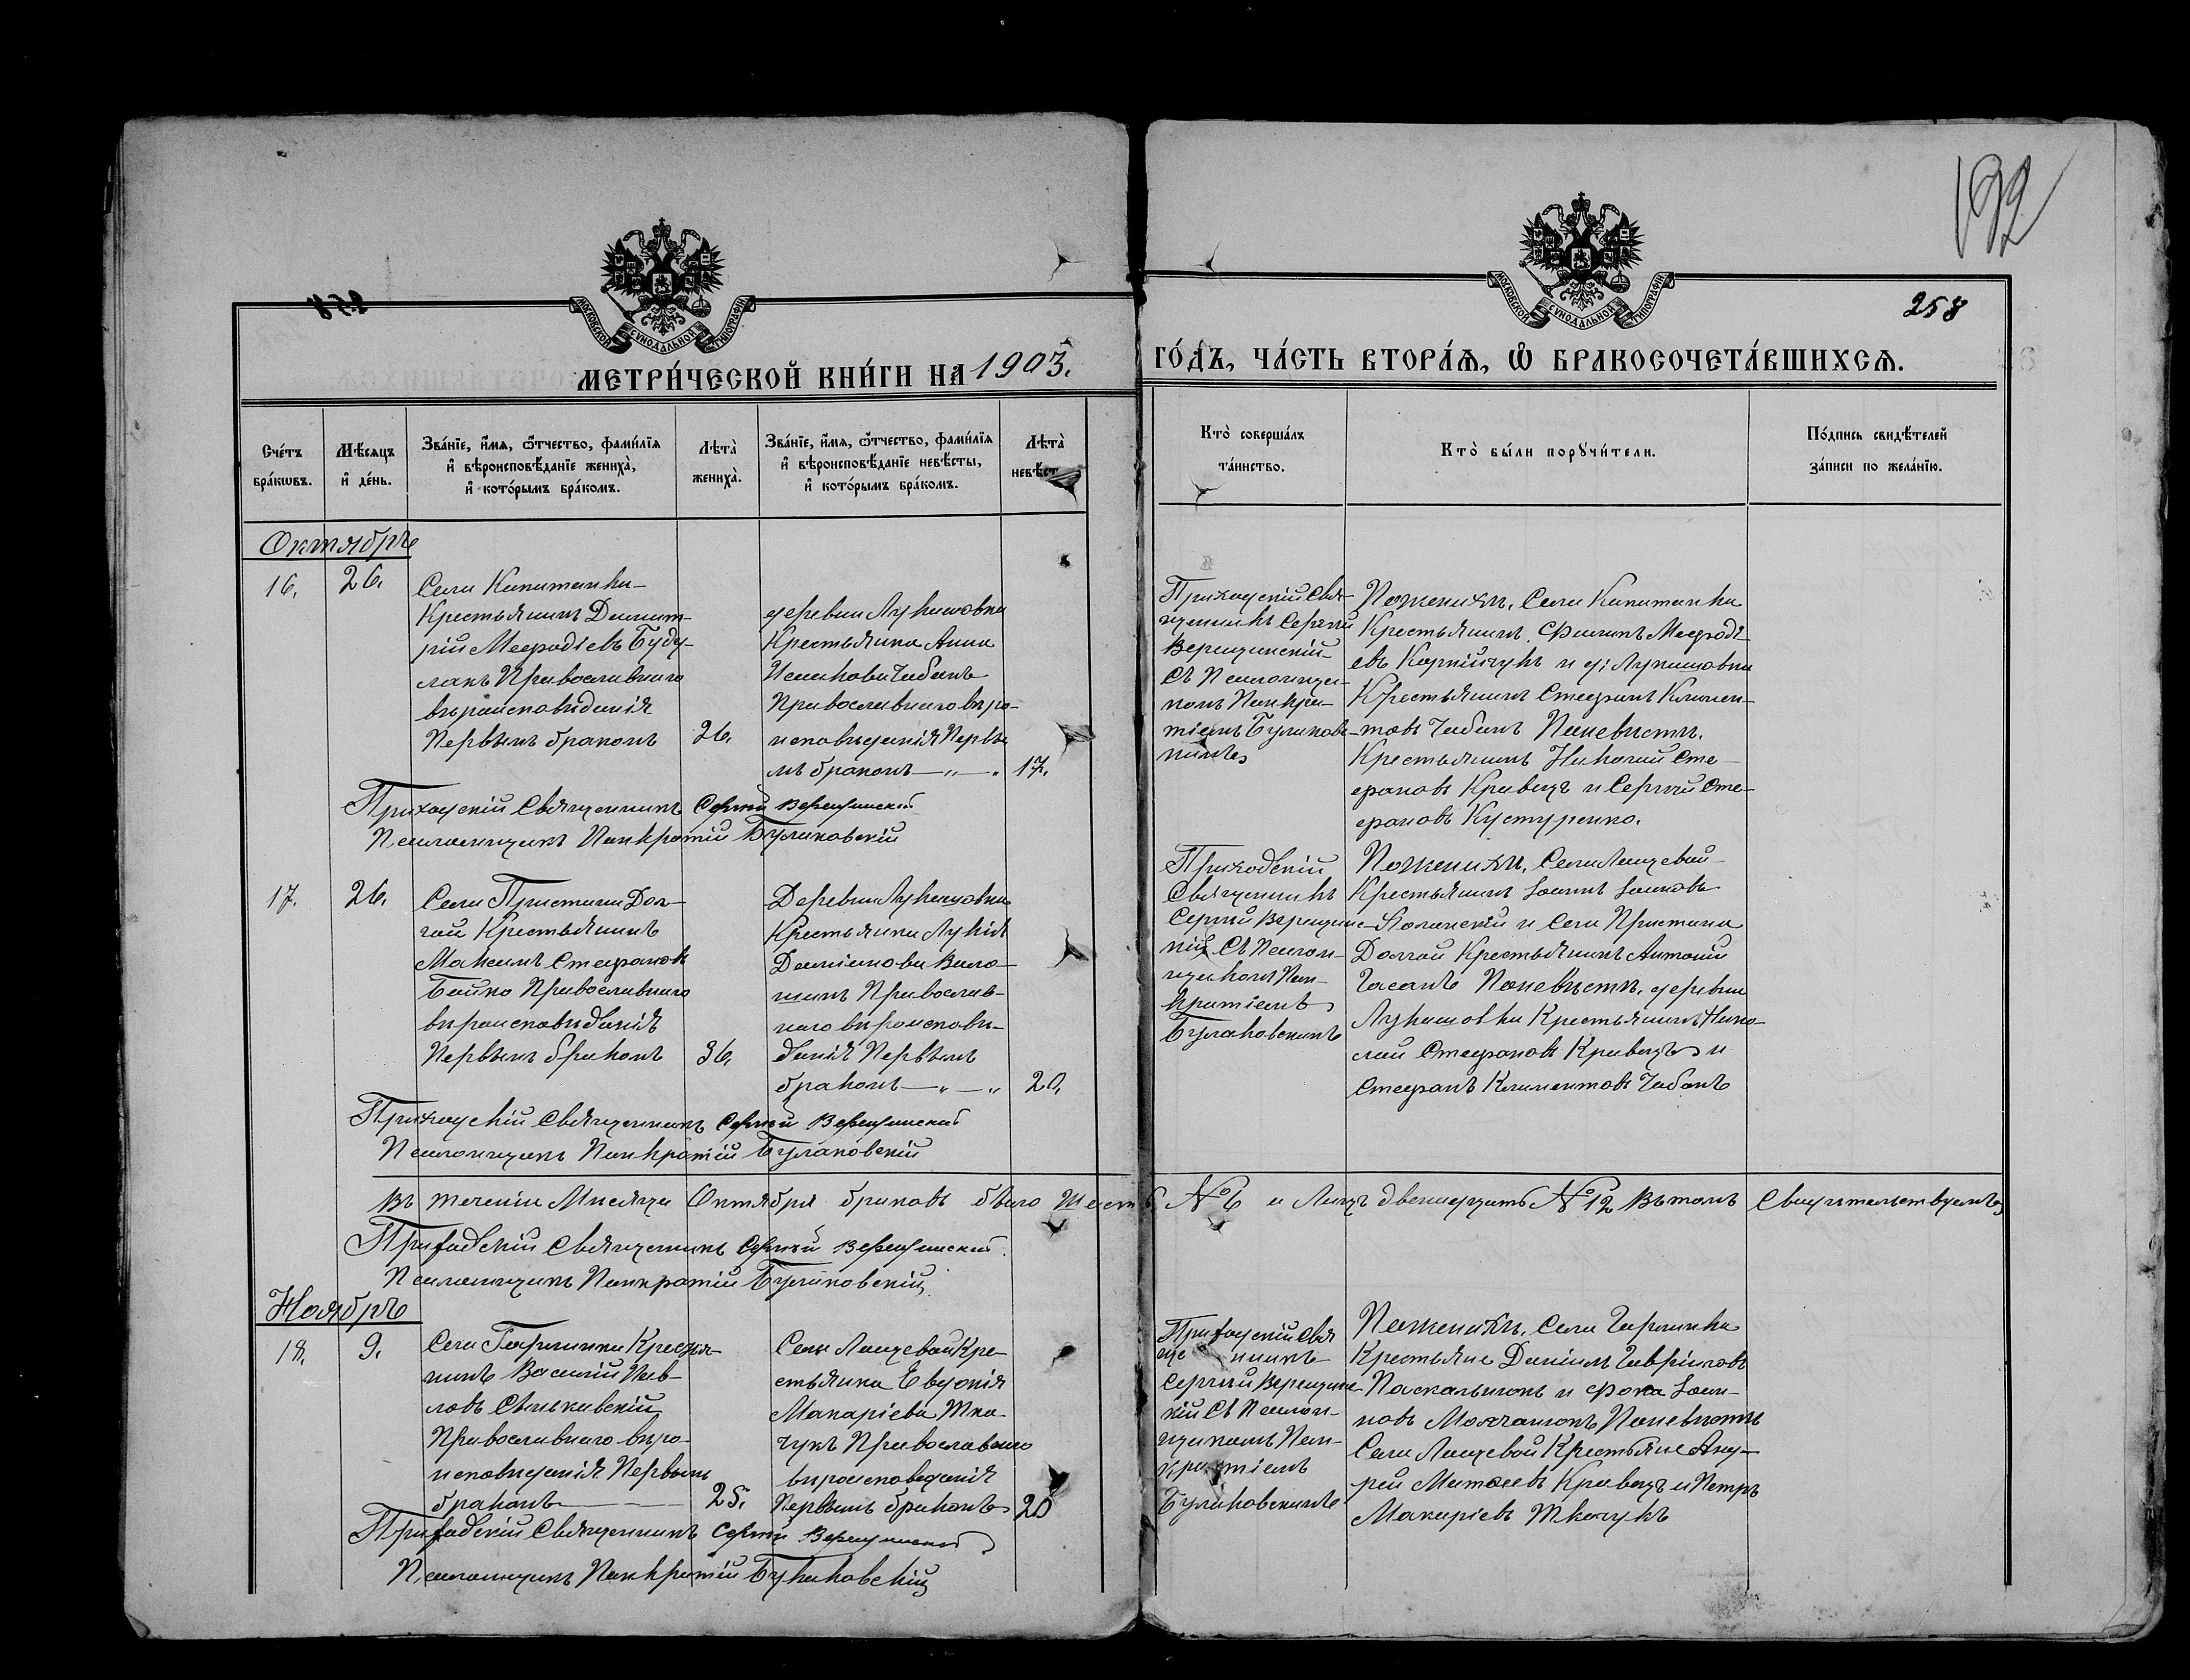 192
258
МОСКОВСКОЙ СѴНОДАЛЬНОЙ ТИПОГРАФІИ
МОСКОВСКОЙ СѴНОДАЛЬНОЙ ТИПОГРАФІИ
МЕТРИ́ЧЕСКОЙ КНИ́ГИ НА 1903.
ГО́ДЪ, ЧА́СТЬ ВТОРА́Ѧ, Ѽ БРАКОСОЧЕТА́ВШИХСѦ.
Сче́тъ бра́кѡвъ.
Мѣ́сѧцъ и҆ де́нь.
Зва́нїе, и҆́мѧ, ѻ҆́тчество, фами́лїѧ и҆ вѣроисповѣ́данїе жениха̀, и҆ кото́рымъ бра́комъ.
Лѣта̀ жениха̀.
Зва́нїе, и҆́мѧ, ѻ҆́тчество, фами́лїѧ и҆ вѣроисповѣ́данїе невѣ́сты, и҆ кото́рымъ бра́комъ.
Лѣта̀ невѣ́ст
Кто̀ соверша́лъ та́инство.
Кто̀ бы́ли порꙋчи́тели.
По́дпись свидѣ́телей за́писи по жела́нїю.
Октябрь
16.
26.
Села Капитанки
Крестьянинъ Димит-
рій Меѳодіевъ Буду-
лакъ Православнаго
вѣроисповѣданія
Первымъ бракомъ
26.
деревни Лукашовки
Крестьянка Анна
Исакова Чабанъ
Православнаго вѣро-
исповѣданія Первы
мъ бракомъ —„—„
17.
Приходскій Свя-
щенникъ Сергій
Верещинскій
съ Псаломщи-
комъ Панкра-
тіемъ Булановс-
кимъ
По женихѣ, Села Капитанки
Крестьянинъ Филипъ Меѳоді-
евъ Корнійчукъ и д: Лукашовки
Крестьянинъ Стефанъ Климен-
товъ Чабанъ По невѣстѣ,
Крестьянинъ Николай Сте-
фановъ Кравецъ и Сергій Сте-
фановъ Кустуренко.
Приходскій Священникъ Сергій Верещинскій
Псаломщикъ Панкратій Булановскій
17.
26.
Села Пристани Дол-
гой Крестьянинъ
Максимъ Стефановъ
Бойко Православнаго
вѣроисповѣданія
Первымъ бракомъ
36.
Деревни Лукашовки
Крестьянка Лукія
Даміанова
Православ-
наго вѣроисповѣ-
данія Первымъ
бракомъ —„—„
20.
Приходскій
Священникъ
Сергій Верещинс-
кій съ Псалом-
щикомъ Пан-
кратіемъ
Булановскимъ
По женихѣ, Села Лащевой
Крестьянинъ Іоаннъ Іоановъ
и Села Пристани
Долгой Крестьянинъ Антоній
По невѣстѣ, деревни
Лукашовки Крестьянинъ Нико-
лай Стефановъ Кравецъ и
Стефанъ Климентовъ Чабанъ
Приходскій Священникъ Сергій Верещинскій
Псаломщикъ Панкратій Булановскій
Въ теченіи Мѣсяца Октября браковъ было шесть № 6 и Лицъ двенадцать № 12 Въ томъ Свидѣтельствуемъ
Приходскій Священникъ Сергій Верещинскій.
Псаломщикъ Панкратій Булановскій
Ноябрь
18.
9.
Села Тарминки Крестья-
нинъ Василій Пав-
ловъ
Православнаго вѣро-
исповѣданія Первымъ
бракомъ —
25.
Села Лащевой Кре-
стьянка Евдокія
Макаріева Тка-
чукъ Православнаго
вѣроисповѣданія
Первымъ бракомъ
20
Приходскій Свя
ще нникъ
Сергій Верещинс-
кій съ Псалом-
щикомъ Пан-
кратіемъ
Булановскимъ
По женихѣ, Села Тарминки
Крестьяне Даніилъ Гавріиловъ
и Фока Іоан-
новъ По невѣстѣ
Села Лащевой Крестьяне Анд-
рей Матѳіевъ Кравецъ и Петръ
Макаріевъ Ткачукъ
Приходскій Священникъ Сергій Верещинскій
Псаломщикъ Панкратій Булановскій